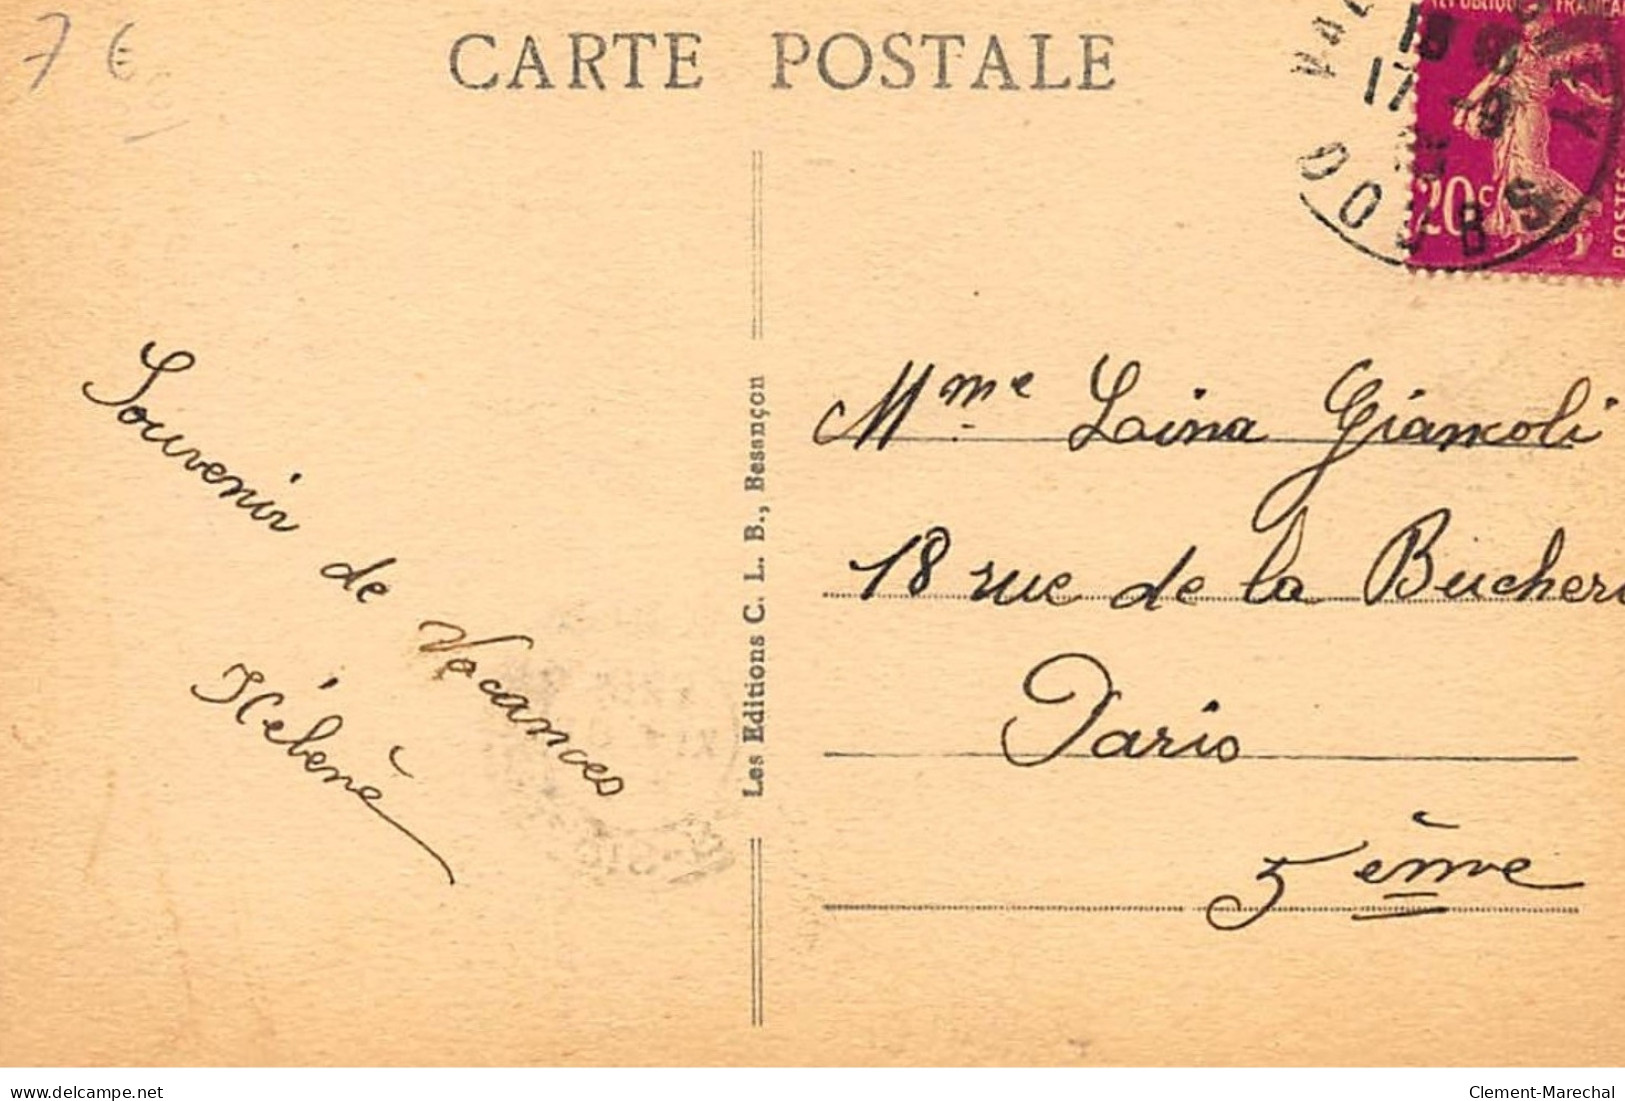 7 €
CARTE POSTALE
RÉPUBLIQUE FRANÇAI
17 -9
DOUBS
20c
POSTES
Souvenir de Vacances
Les Editions C. L. B., Besançon
Mme Laina Giancoli
18 rue de la Bucheri
Paris
5ème
www.delcampe.net
Clement-Marechal